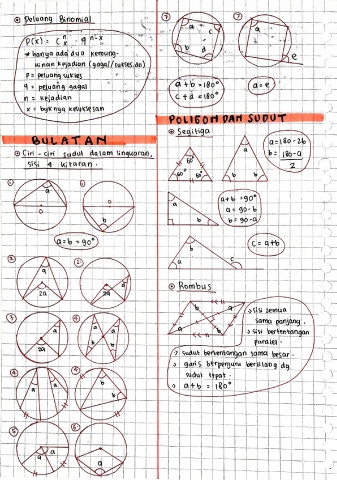 Peluang Binomial
P(x) = C n x . q n-x
* hanya ada dua kemung-
kinan kejadian (gagal/sukses, dn)
P = peluang sukses
q = peluang gagal
n = kejadian
x = byknya kesuksesan
BULATAN
Ciri-ciri sudut dalam lingkaran,
sisi 4 kitaran.
a = b = 90°
a
b
a
2a
a
2a
a
2a
a
b
a
a
b
a
a
a
7
a
c
b
d
a + b = 180°
c + d = 180°
7
a
e
a = e
POLIGON DAN SUDUT
Segitiga
60°
60°
60°
a
b
b
a = 180 - 2b
b = 180 - a
2
a
b
a + b = 90°
a = 90 - b
b = 90 - a
a
b
c
c = a + b
Rombus
a
b
b
a
> sisi semua
sama panjang.
> sisi bertentangan
paralel.
> sudut bertentangan sama besar.
> garis berpenjuru bersilang dg
sudut tepat.
> a + b = 180°